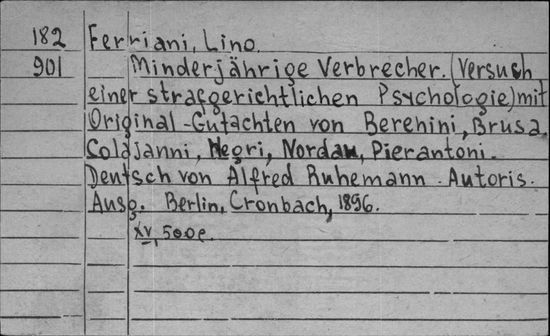 182 Ferriani, Lino.
901 Minderjährige Verbrecher. (Versuch
einer strafgerichtlichen Psychologie) mit
Original-Gutachten von Berenini, Brusa,
Colajanni, Negri, Nordau, Pierantoni.
Deutsch von Alfred Ruhemann. Autoris.
Ausg. Berlin, Cronbach, 1896.
XV, 500 p.